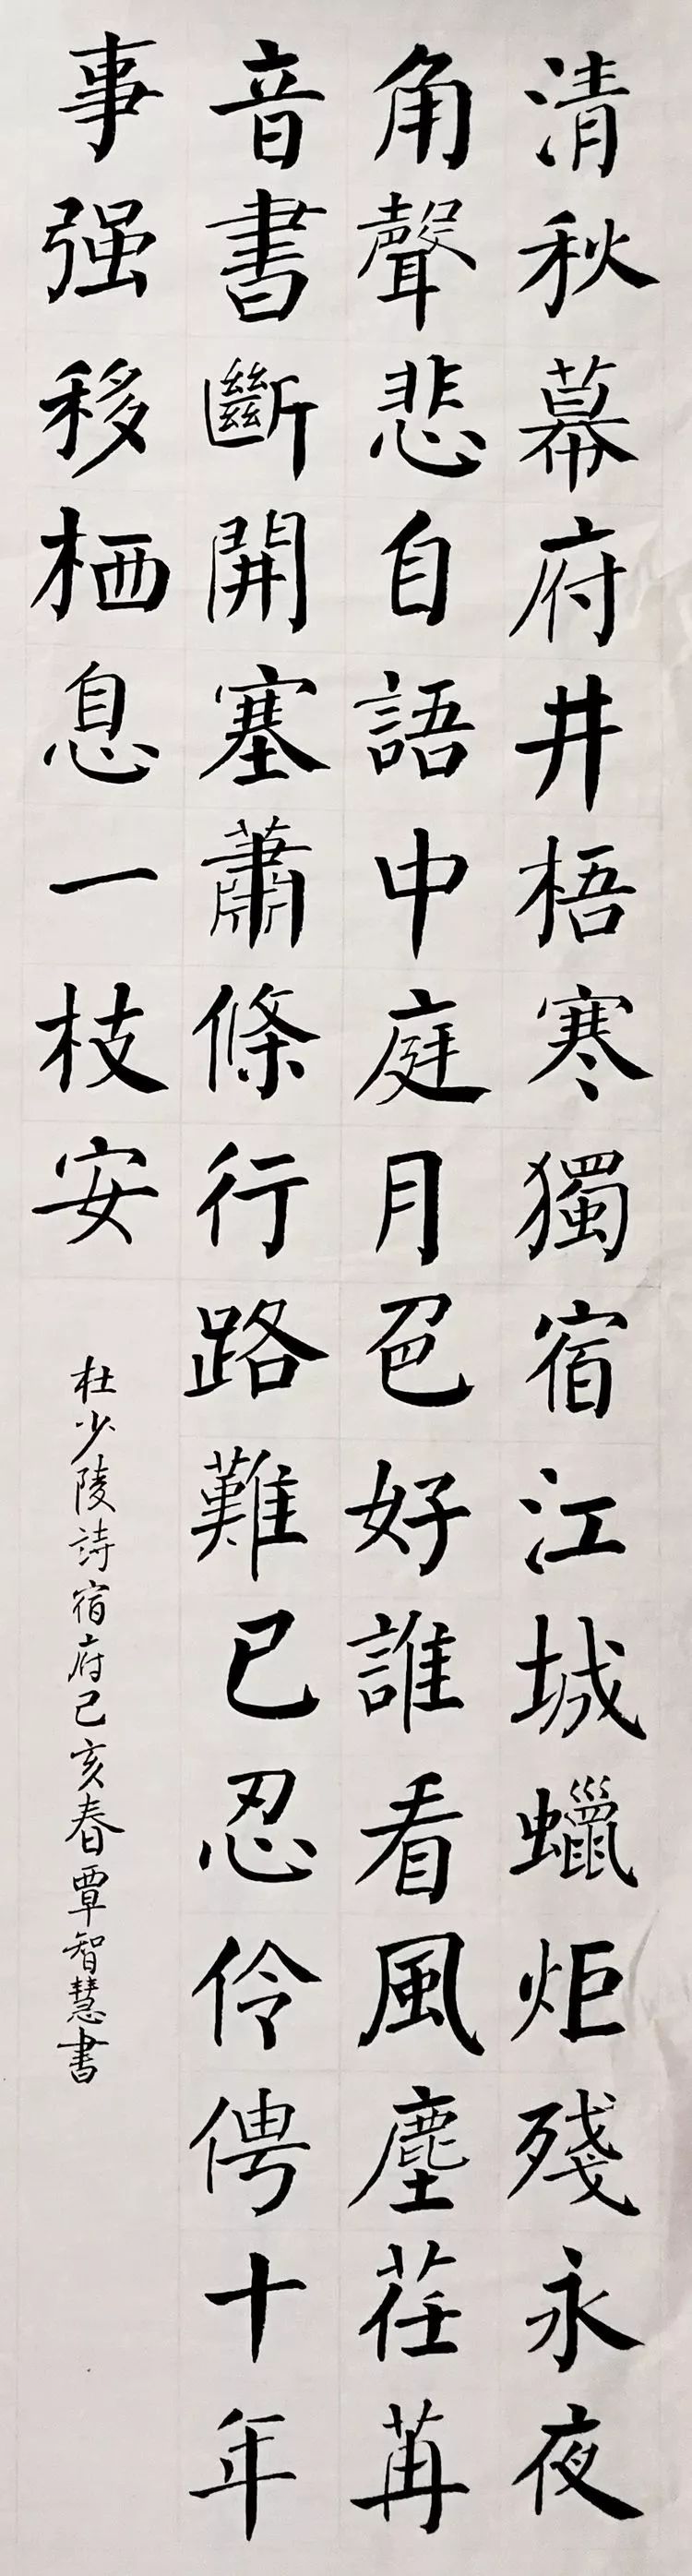 清秋幕府井梧寒獨宿江城蠟炬殘永夜
角聲悲自語中庭月色好誰看風塵荏苒
音書斷開塞蕭條行路難已忍伶俜十年
事强移栖息一枝安
杜少陵詩宿府己亥春覃智慧書